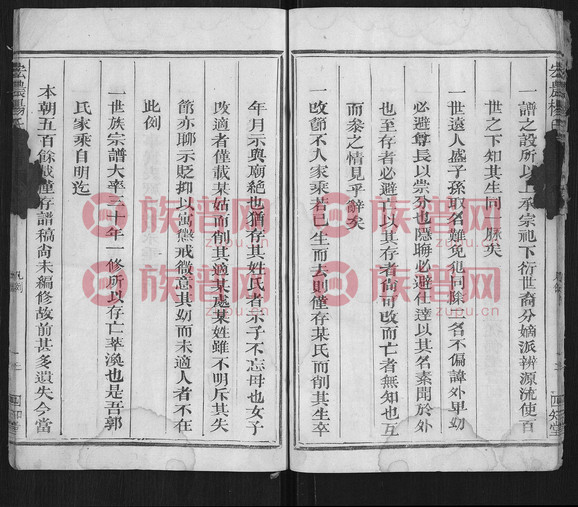 宏農楊氏
一譜之設所以上承宗祀下衍世裔分嫡派辨源流使百
世之下知其生同一脈矣
一世遠人盛子孫取名難免犯同除二名不偏諱外卑幼
必避尊長以崇分也隱晦必避仕達以其名素聞於外
也至存者必避亡以其存者尚可改而亡者無知也互
而參之情見乎辭矣
一改節不入家乘若已生而去則僅存某氏而削其生卒
年月示與廟絶也猶存其姓氏者示子不忘母也女子
改適者僅載某姑而削其適某處某姓雖不明斥其失
節亦聊示貶抑以寓懲戒微意其幼而未適人者不在
此例
一世族宗譜大率三十年一修所以存亡萃渙也是吾郭
氏家乘自明迄
本朝五百餘載僅存譜稿尚未編修故前甚多遺失今當
宏農楊氏
凡例
四知堂
族譜网
zupu.cn